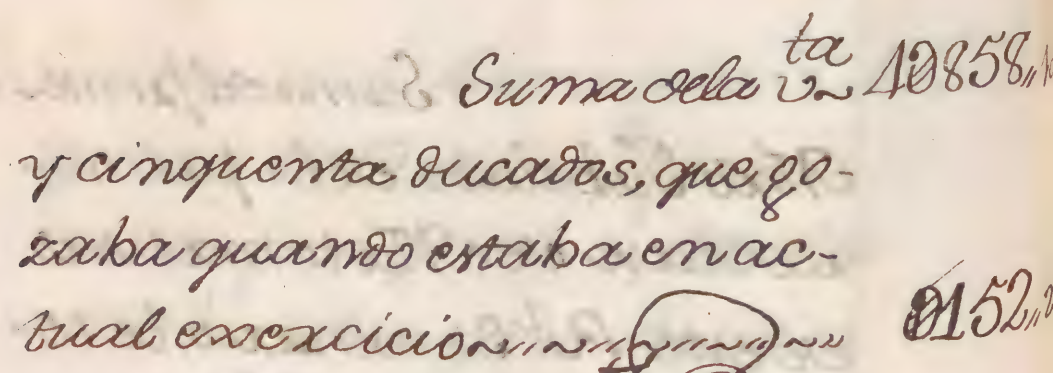 Suma dela v.ta 4U858,,
y cinquenta ducados, que go-
zaba quando estaba en ac-
tual exercicio 152,,